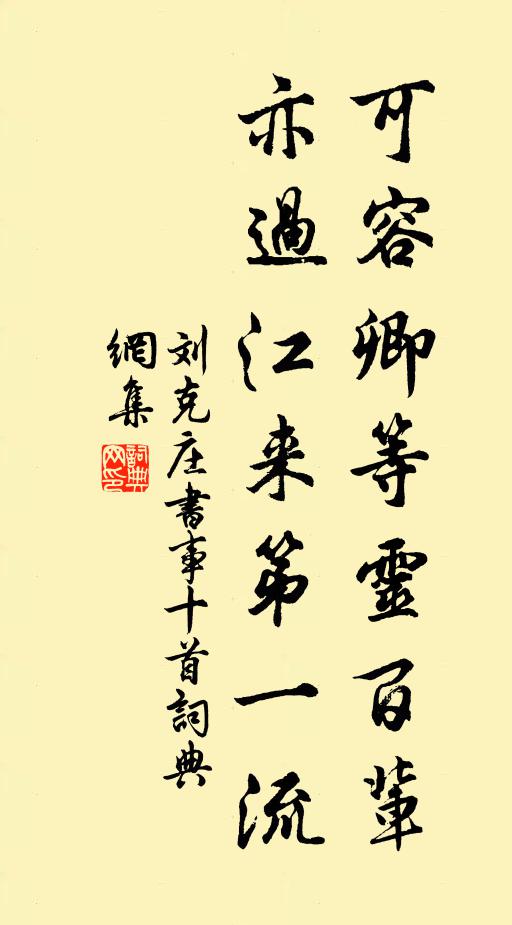 可容卿等靈百輩
亦過江来第一流
刘克庄書事十首詞典
網集
詞典網印